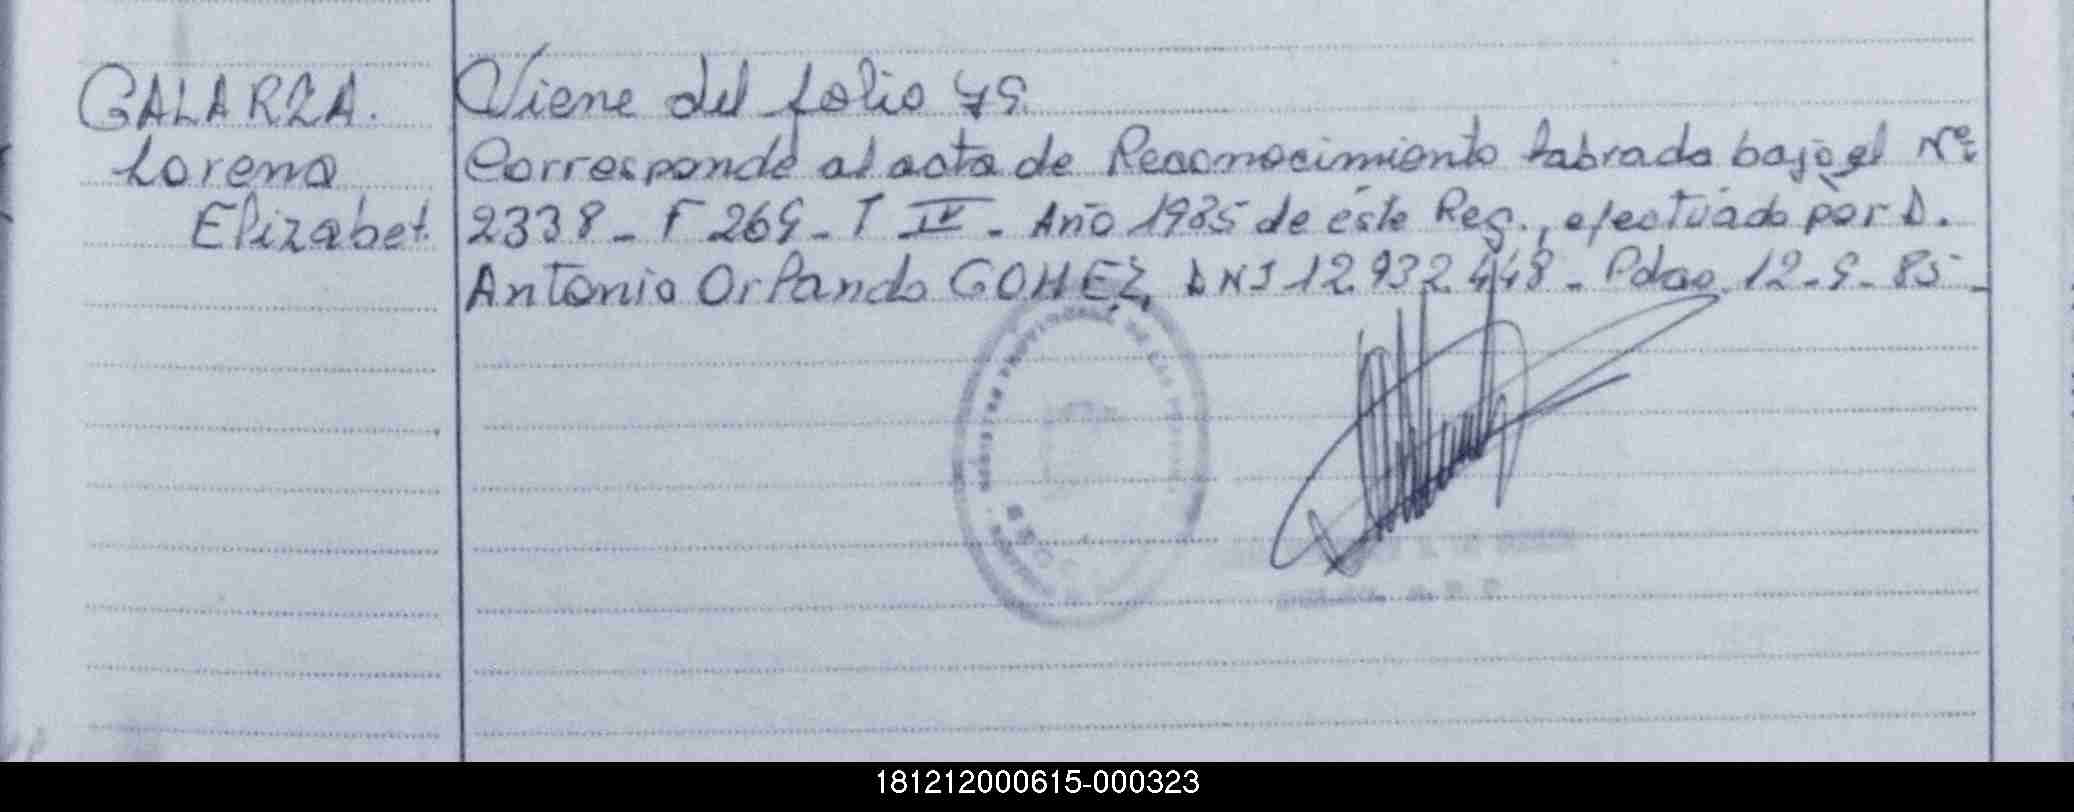 GALARZA.
Lorena
Elizabet.
Viene del folio 79.
Corresponde al acta de Reconocimiento labrado bajo el Nº:
2338 - F 269 - T IV - Año 1985 de éste Reg., efectuado por D.
Antonio Orlando GOMEZ, DNI 12.932.448 - Pdas. 12-9-85 -
181212000615-000323